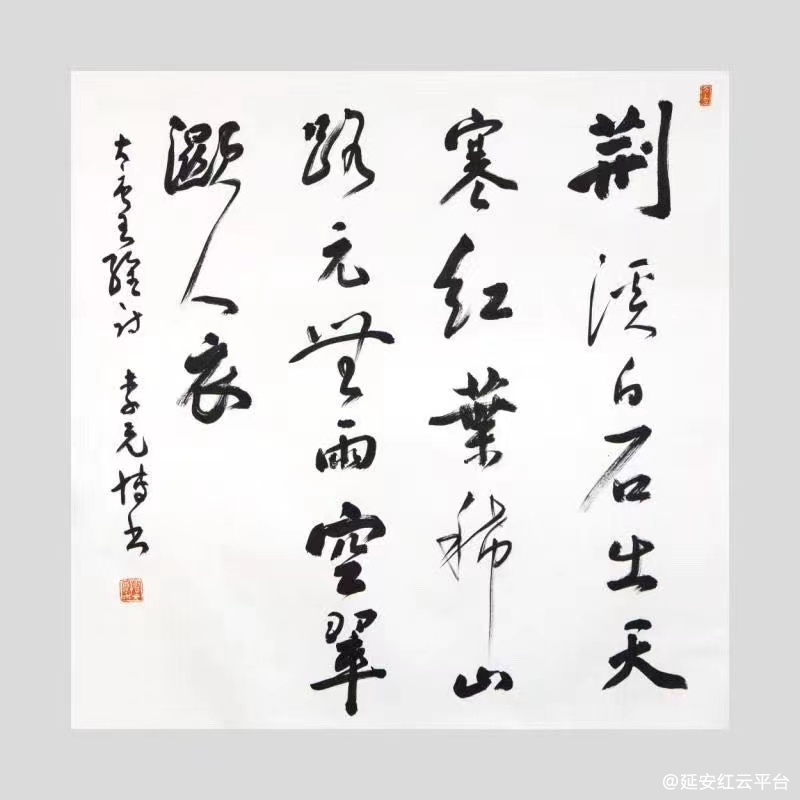 荆溪白石出天
寒红葉稀山
路元無雨空翠
濕人衣
大唐王維诗 李博书
@延安红云平台